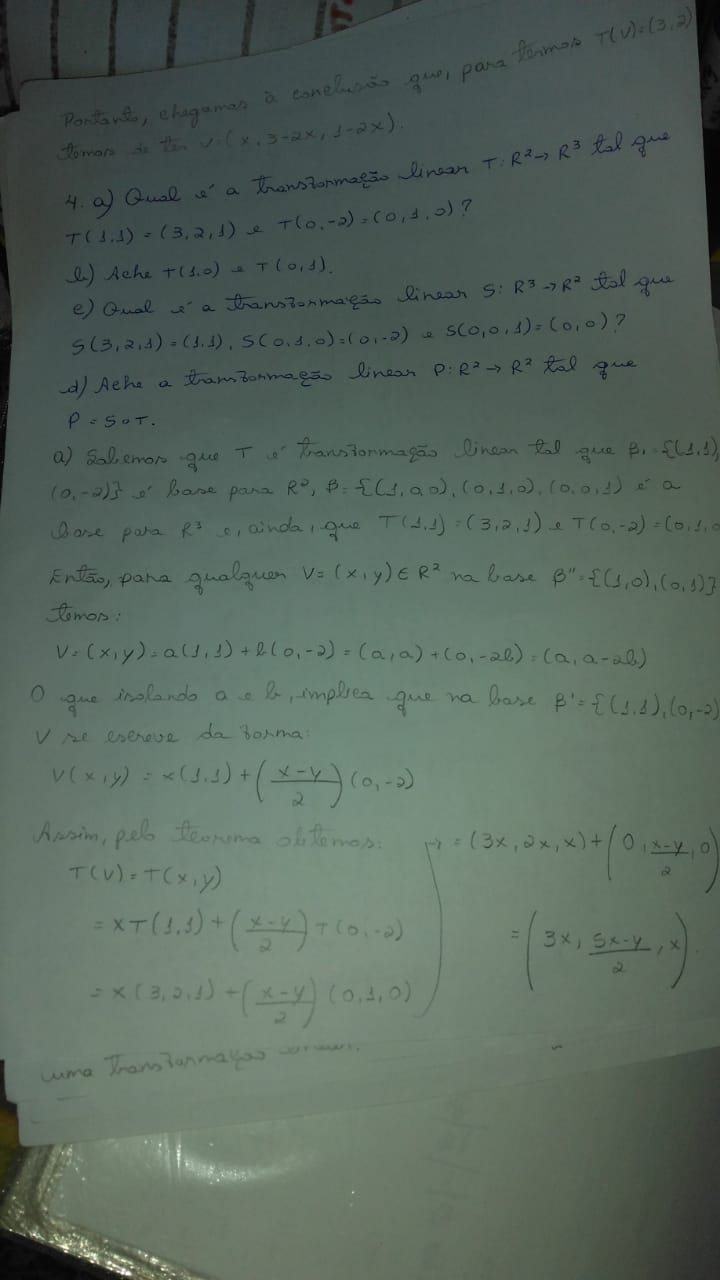 Portanto, chegamos à conclusão que, para termos T(V)=(3,2)
temos de ter V=(x,3-2x,1-2x).
4. a) Qual é a transformação linear T:R²→R³ tal que
T(1,1)=(3,2,1) e T(0,-2)=(0,1,0)?
b) Ache T(1,0) e T(0,1).
c) Qual é a transformação linear S:R³→R² tal que
S(3,2,1)=(1,1), S(0,1,0)=(0,-2) e S(0,0,1)=(0,0)?
d) Ache a transformação linear P:R²→R² tal que
P=S∘T.
a) Sabemos que T é transformação linear tal que β₁={(1,1),
(0,-2)} é base para R², β={(1,0,0),(0,1,0),(0,0,1) é a
base para R³ e, ainda, que T(1,1)=(3,2,1) e T(0,-2)=(0,1,0
Então, para qualquer V=(x,y)∈R² na base β''={(1,0),(0,1)}
temos:
V=(x,y)=a(1,1)+b(0,-2)=(a,a)+(0,-2b)=(a,a-2b)
O que isolando a e b, implica que na base β'={(1,1),(0,-2)
V se escreve da forma:
V(x,y)=x(1,1)+((x-y)/2)(0,-2)
Assim, pelo teorema obtemos:
T(V)=T(x,y)
=xT(1,1)+((x-y)/2)T(0,-2)
=x(3,2,1)+((x-y)/2)(0,1,0)
→=(3x,2x,x)+(0,(x-y)/2,0)
=(3x,(5x-y)/2,x).
uma Transformação